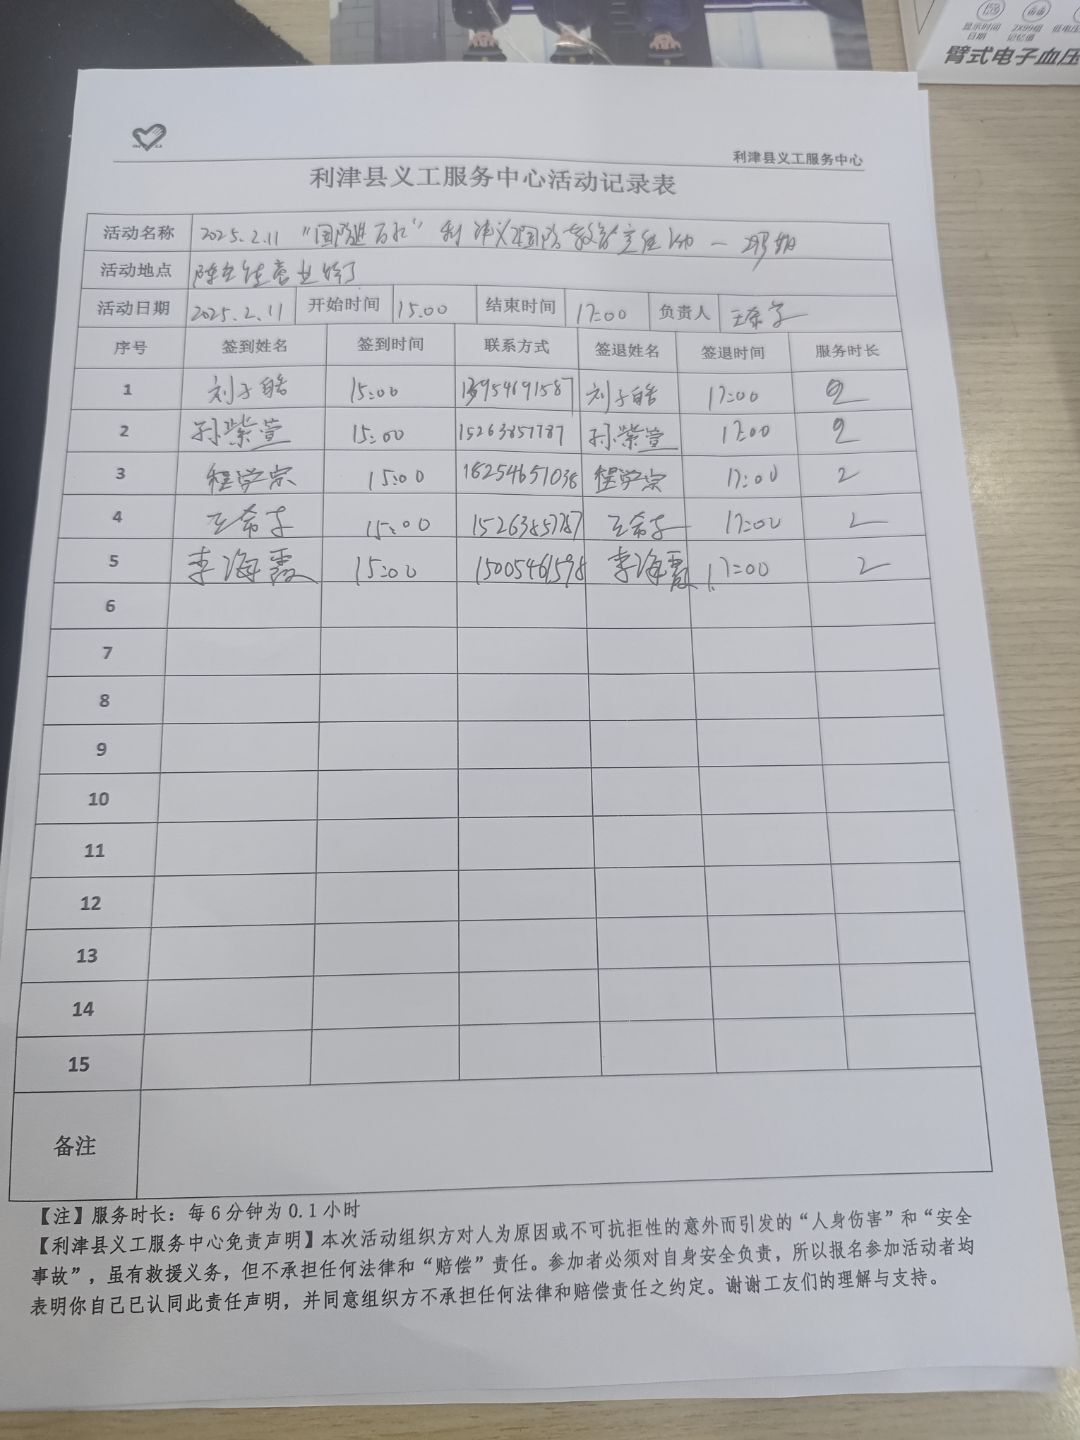 显示时间 日期
2X99组 记忆值
臂式电子血压
利津县义工服务中心
利津县义工服务中心活动记录表
活动名称 2025.2.11 “团队进万家” 利津义工团队
活动地点
活动日期 2025.2.11 开始时间 15:00 结束时间 17:00 负责人
序号 签到姓名 签到时间 联系方式 签退姓名 签退时间 服务时长
1 刘子皓 15:00 13954691587 刘子皓 17:00 2
2 孙紫萱 15:00 15263857787 孙紫萱 17:00 2
3 程学宗 15:00 18254651038 程学宗 17:00 2
4 王希子 15:00 15263857787 王希子 17:00 2
5 李海霞 15:00 15005461598 李海霞 17:00 2
6
7
8
9
10
11
12
13
14
15
备注
【注】服务时长：每6分钟为0.1小时
【利津县义工服务中心免责声明】本次活动组织方对人为原因或不可抗拒性的意外而引发的“人身伤害”和“安全
事故”，虽有救援义务，但不承担任何法律和“赔偿”责任。参加者必须对自身安全负责，所以报名参加活动者均
表明你自己已认同此责任声明，并同意组织方不承担任何法律和赔偿责任之约定。谢谢工友们的理解与支持。